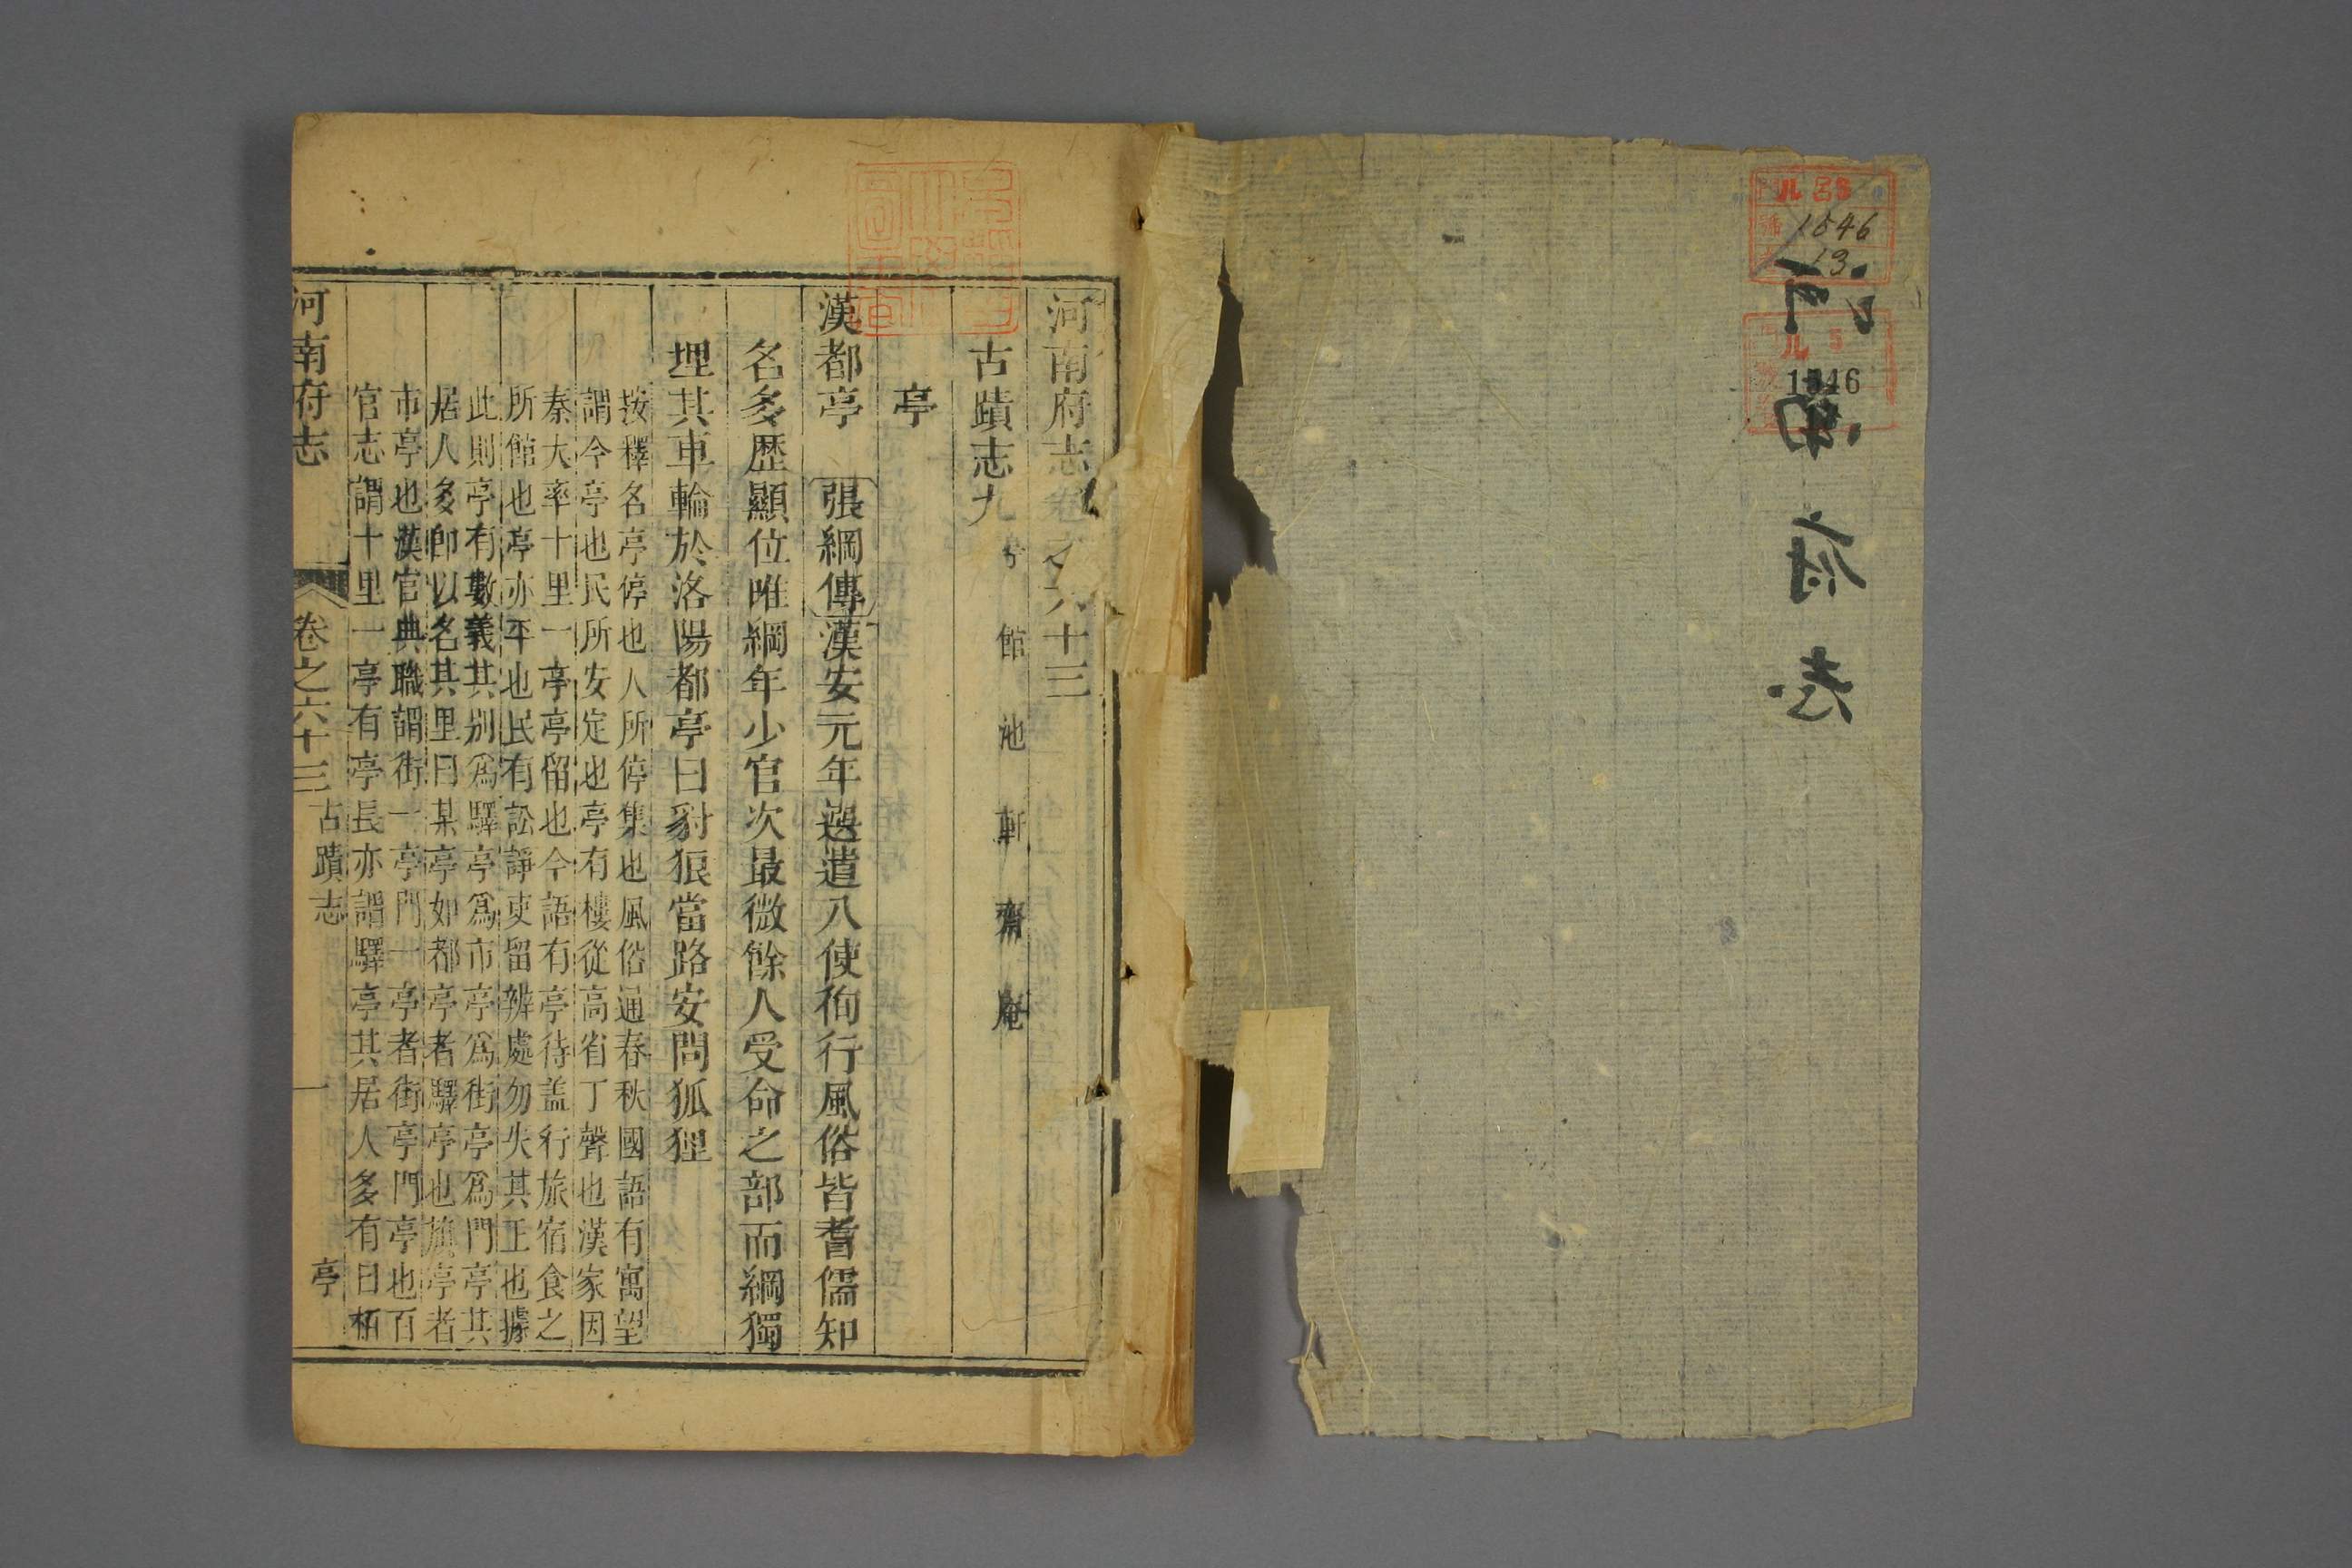 ル 5
1546
13
ル 5
1546
河南府志
河南府志卷之六十三
古蹟志九
館 池 軒 齋 庵
亭
漢都亭 張綱傳漢安元年選遣八使徇行風俗皆耆儒知
名多歷顯位唯綱年少官次最微餘人受命之部而綱獨
埋其車輪於洛陽都亭曰豺狼當路安問狐狸
按釋名亭停也人所停集也風俗通春秋國語有寓望
謂今亭也民所安定也亭有樓從高省丁聲也漢家因
秦大率十里一亭亭留也今語有亭待盖行旅宿食之
所館也亭亦平也民有訟諍吏留辨處勿失其正也據
此則亭有數義其别爲驛亭爲市亭爲街亭爲門亭其
居人多卽以名其里曰某亭如都亭者驛亭也旗亭者
市亭也漢官典職謂街一亭門一亭者街亭門亭也百
官志謂十里一亭有亭長亦謂驛亭其居人多有曰栢
河南府志 卷之六十三 古蹟志 亭 一